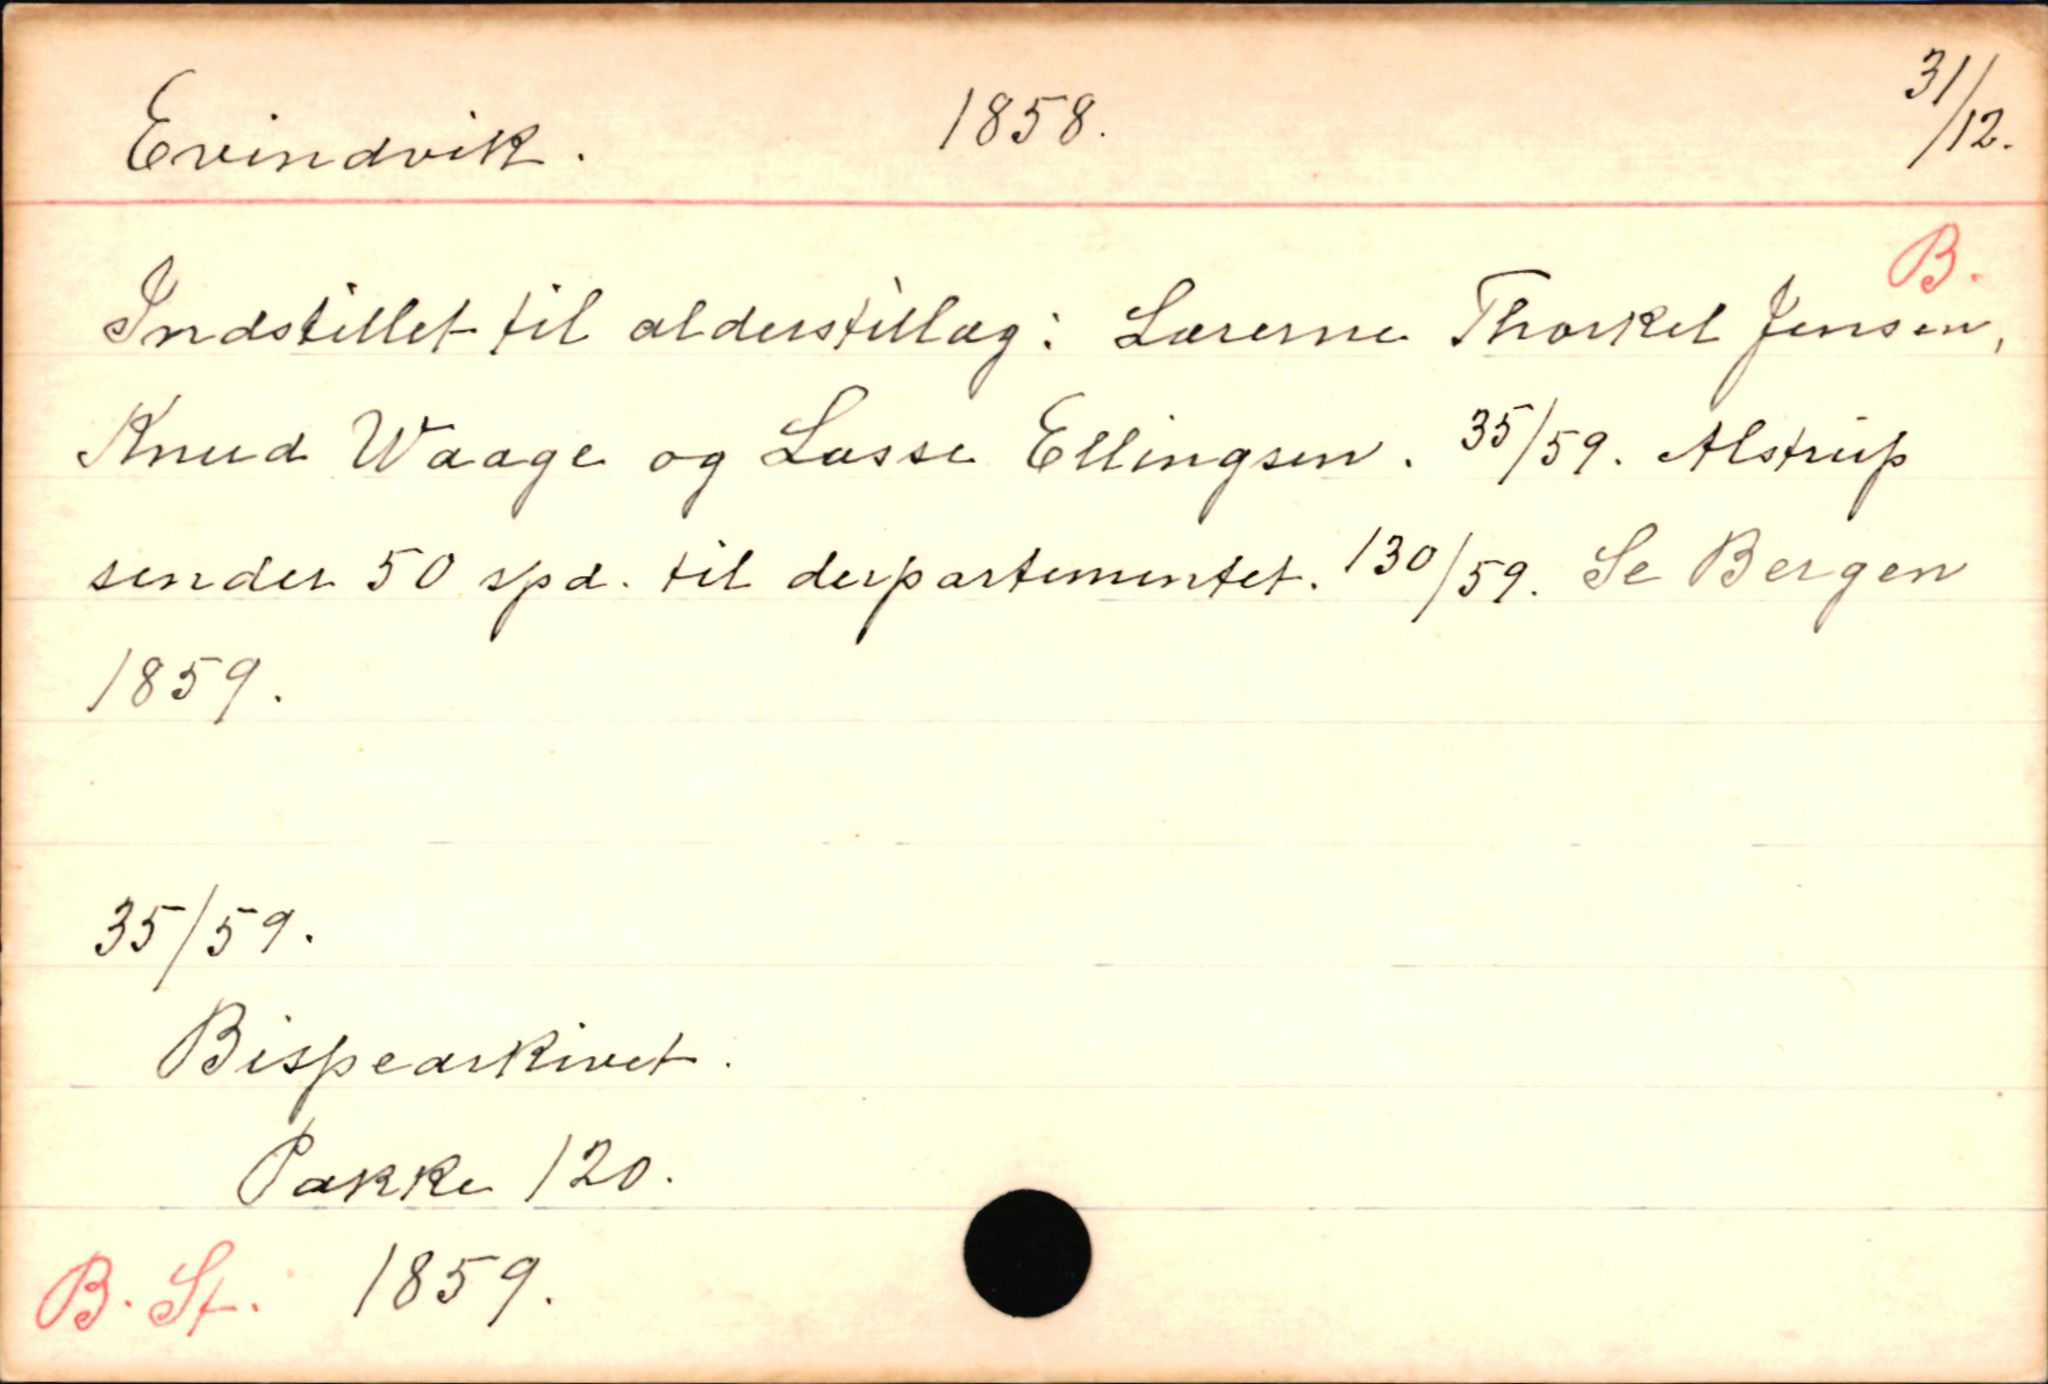 Evindvik. 1858. 31/12.
B.
Indstillet til alderstillæg: Lærerne Thorkel Jensen,
Knud Waage og Lasse Ellingsen. 35/59. Alstrup
sender 50 spd. til departementet. 130/59. Se Bergen
1859.
35/59.
Bispearkivet.
Pakke 120.
B. St. 1859.